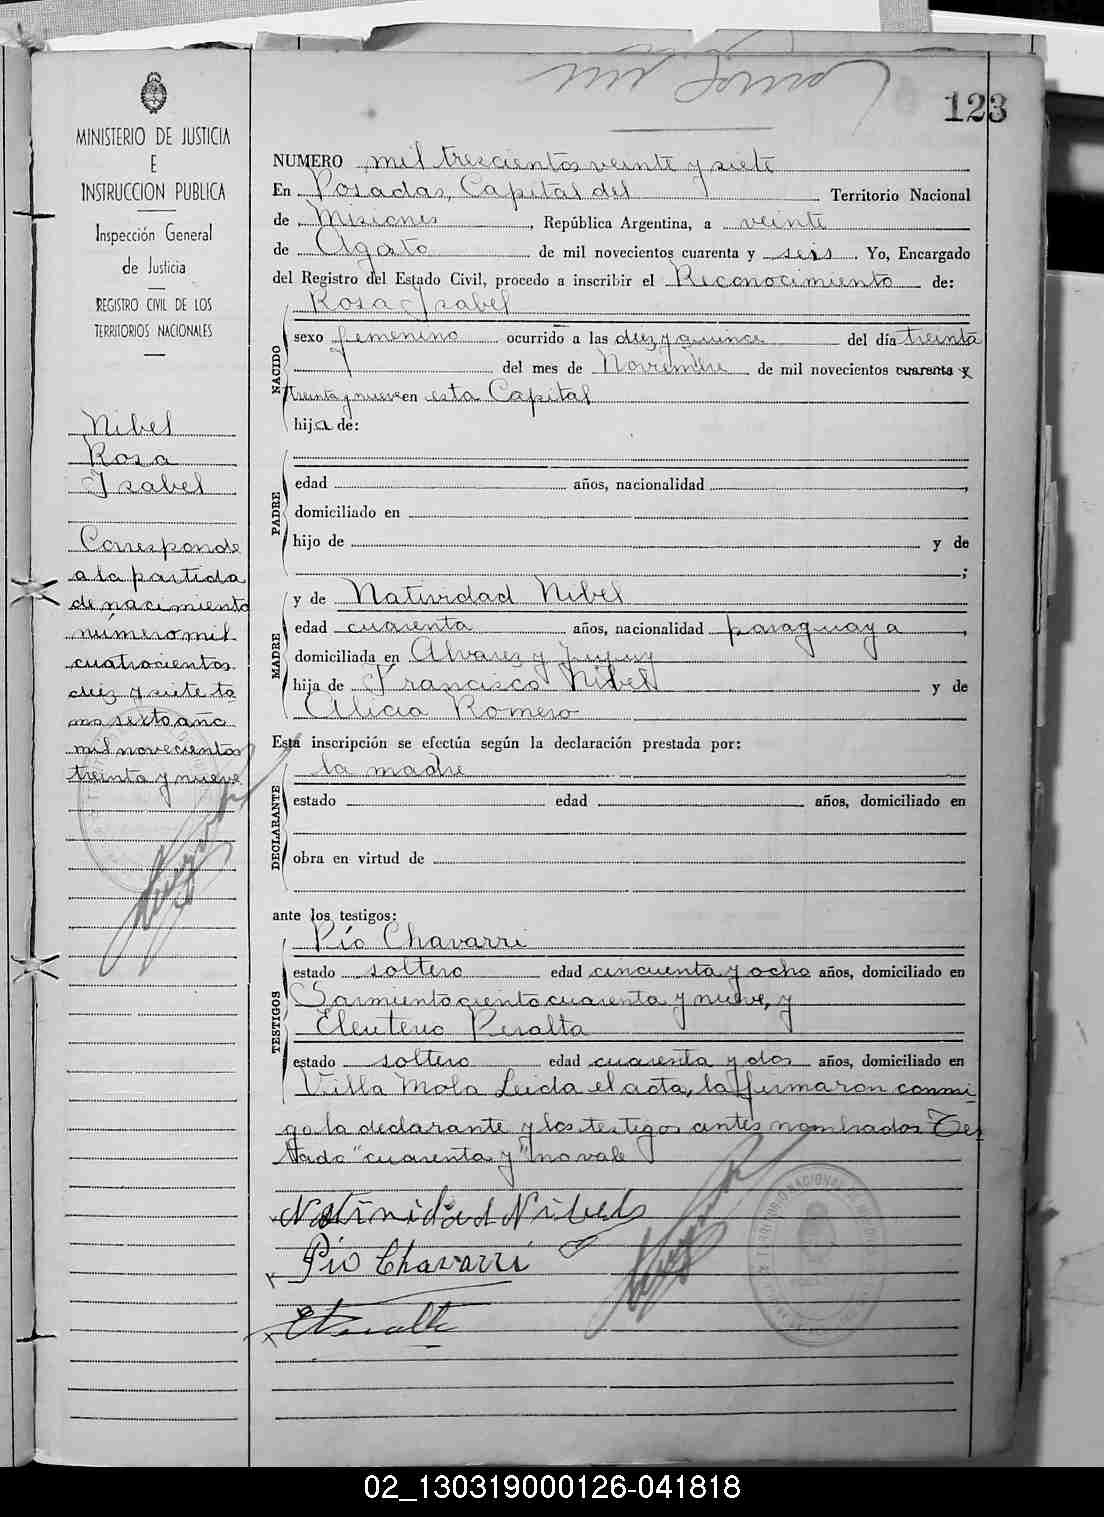 123
MINISTERIO DE JUSTICIA
E
INSTRUCCION PUBLICA
Inspección General
de Justicia
REGISTRO CIVIL DE LOS
TERRITORIOS NACIONALES
Nibel
Rosa
Isabel
Corresponde
a la partida
de nacimiento
número mil
cuatrocientos
diez y siete to
mo sexto año
mil novecientos
treinta y nueve
NUMERO mil trescientos veinte y siete
En Posadas, Capital del Territorio Nacional
de Misiones, República Argentina, a veinte
de Agosto de mil novecientos cuarenta y seis. Yo, Encargado
del Registro del Estado Civil, procedo a inscribir el Reconocimiento de:
Rosa Isabel
NACIDO
sexo femenino ocurrido a las diez y quince del día treinta
del mes de Noviembre de mil novecientos cuarenta y
treinta y nueve en esta Capital
hija de:
PADRE
edad años, nacionalidad ,
domiciliado en
hijo de y de
;
y de Natividad Nibel
MADRE
edad cuarenta años, nacionalidad paraguaya,
domiciliada en Alvarez y Jujuy
hija de Francisco Nibel y de
Alicia Romero
Esta inscripción se efectúa según la declaración prestada por:
la madre
DECLARANTE
estado edad años, domiciliado en
obra en virtud de
ante los testigos:
Pío Chavarri
TESTIGOS
estado soltero edad cincuenta y ocho años, domiciliado en
Sarmiento ciento cuarenta y nueve, y
Eleuterio Peralta
estado soltero edad cuarenta y dos años, domiciliado en
Villa Mola Leida el acta, la firmaron conmi
go la declarante y los testigos antes nombrados Tes
tado "cuarenta y" no vale
Natividad Nibel
Pío Chavarri
EPeralta
02_130319000126-041818